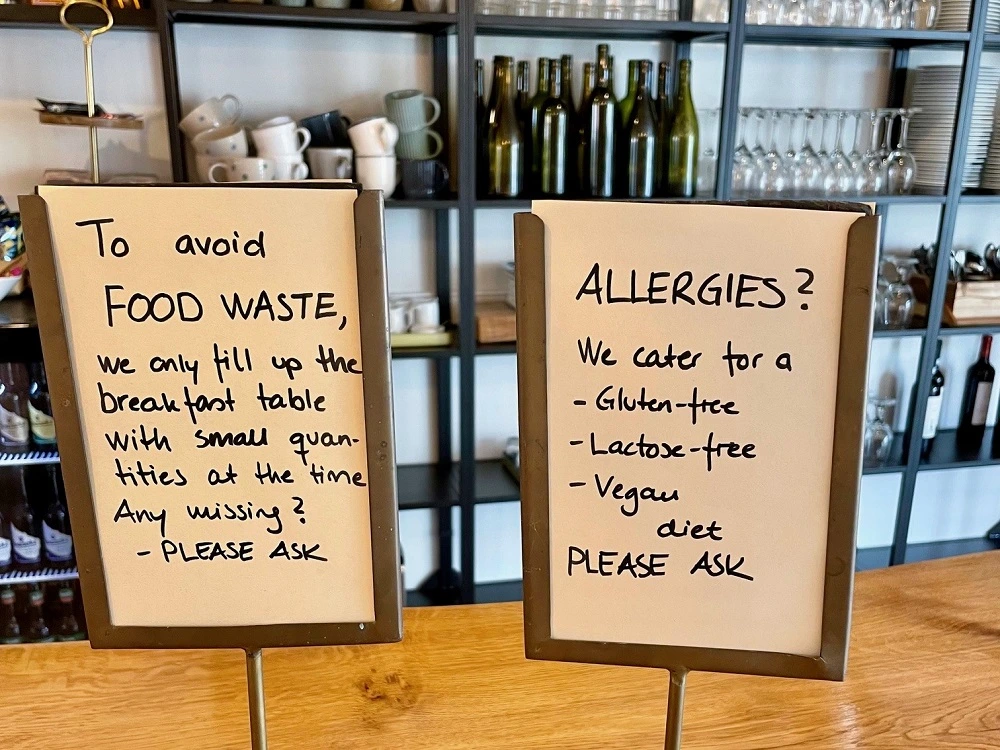 To avoid
FOOD WASTE,
we only fill up the
breakfast table
with small quan-
tities at the time
Any missing?
- PLEASE ASK
ALLERGIES?
We cater for a
- Gluten-free
- Lactose-free
- Vegan
diet
PLEASE ASK